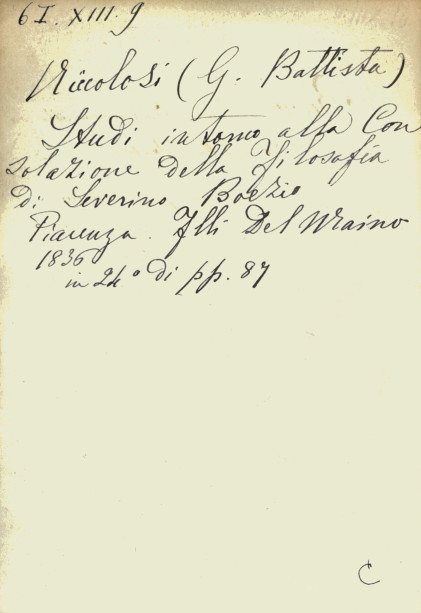 61. XIII. 9
Niccolosi (G. Battista)
Studi intorno alla Con
solazione della Filosofia
di Severino Boezio
Piacenza. Flli Del Maino
1836
in 24° di pp. 87
C